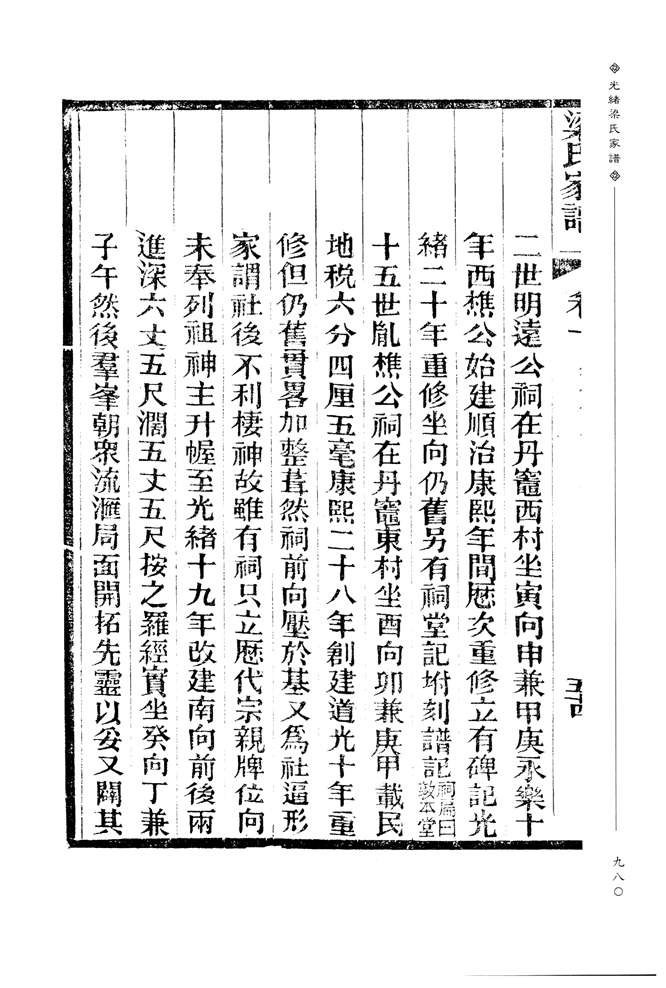 光緒梁氏家譜
九八〇
梁氏家譜
卷一
五十四
二世明遠公祠在丹竈西村坐寅向申兼甲庚永樂十
年西樵公始建順治康熙年間歷次重修立有碑記光
緒二十年重修坐向仍舊另有祠堂記坿刻譜記祠扁曰敦本堂
十五世胤樵公祠在丹竈東村坐酉向卯兼庚甲載民
地税六分四厘五毫康熙二十八年創建道光十年重
修但仍舊貫畧加整葺然祠前向壓於基又爲社逼形
家謂社後不利棲神故雖有祠只立歷代宗親牌位向
未奉列祖神主升幄至光緒十九年改建南向前後兩
進深六丈五尺濶五丈五尺按之羅經實坐癸向丁兼
子午然後羣峯朝衆流滙局面開拓先靈以妥又闢其